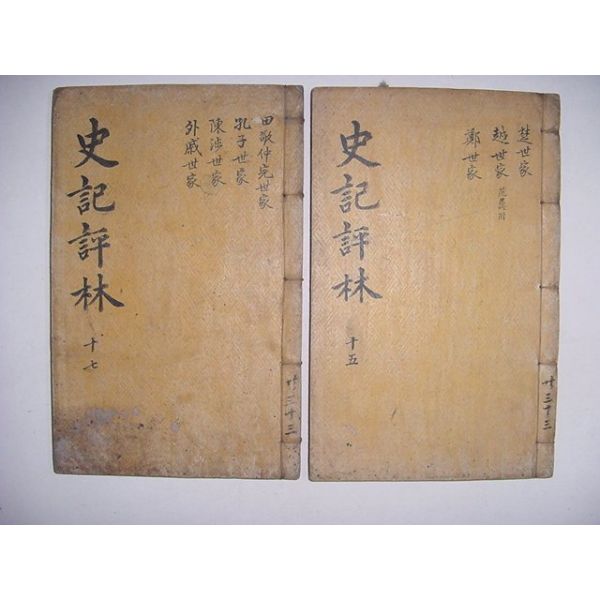 共三十三
楚世家
越世家 范蠡附
鄭世家
史記評林
十五
共三十三
田敬仲完世家
孔子世家
陳涉世家
外戚世家
史記評林
十七